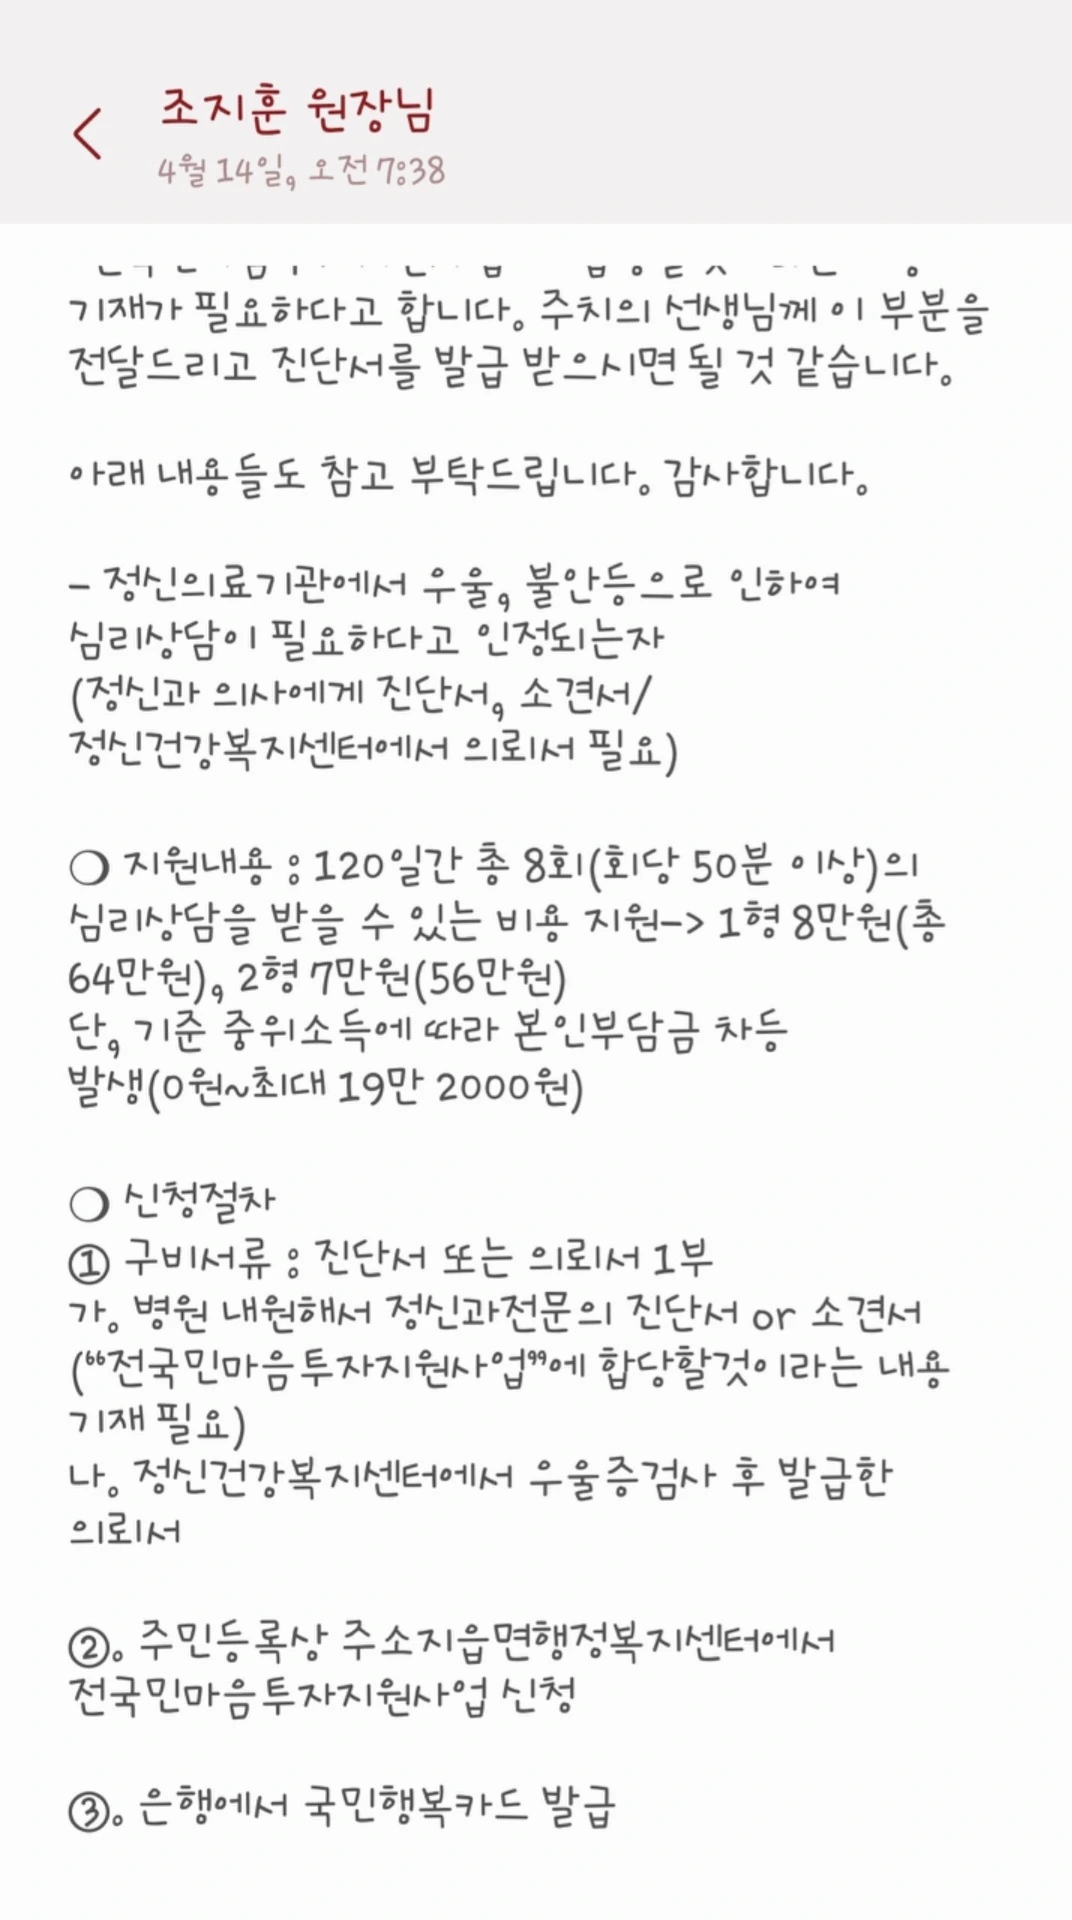 조지훈 원장님
4월 14일, 오전 7:38
기재가 필요하다고 합니다. 주치의 선생님께 이 부분을
전달드리고 진단서를 발급 받으시면 될 것 같습니다.
아래 내용들도 참고 부탁드립니다. 감사합니다.
- 정신의료기관에서 우울, 불안등으로 인하여
심리상담이 필요하다고 인정되는자
(정신과 의사에게 진단서, 소견서/
정신건강복지센터에서 의뢰서 필요)
❍ 지원내용 : 120일간 총 8회(회당 50분 이상)의
심리상담을 받을 수 있는 비용 지원-> 1형 8만원(총
64만원), 2형 7만원(56만원)
단, 기준 중위소득에 따라 본인부담금 차등
발생(0원~최대 19만 2000원)
❍ 신청절차
① 구비서류 : 진단서 또는 의뢰서 1부
가. 병원 내원해서 정신과전문의 진단서 or 소견서
(“전국민마음투자지원사업”에 합당할것이라는 내용
기재 필요)
나. 정신건강복지센터에서 우울증검사 후 발급한
의뢰서
②. 주민등록상 주소지읍면행정복지센터에서
전국민마음투자지원사업 신청
③. 은행에서 국민행복카드 발급